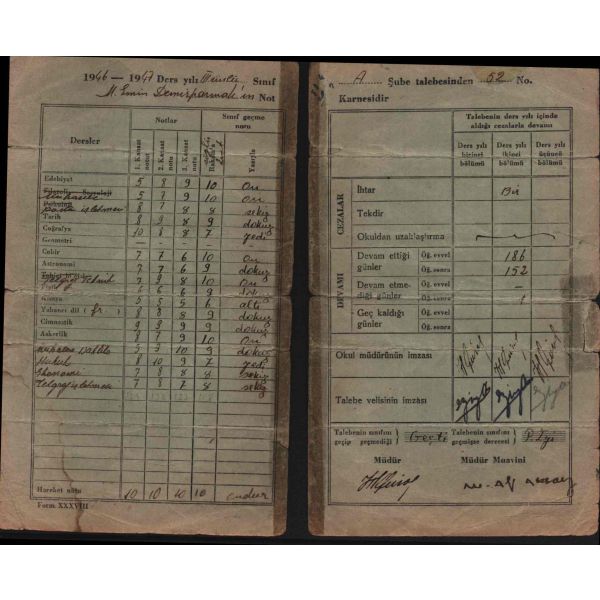 1946 — 1947 Ders yılı Sınıf
M. Emin Demirparmak'ın Not
Dersler
Notlar
Sınıf geçme notu
1. Kanaat notu
2. Kanaat notu
3. Kanaat notu
Rakamla
Yazıyle
Edebiyat 5 8 9 10 On
Felsefe Sosyoloji
5 8 9 10 On
Psikoloji
8 7 8 8 sekiz
Tarih 8 9 8 9 dokuz
Coğrafya 10 8 8 7 yedi
Geometri — — — —
Cebir 7 7 6 10 on
Astronomi 7 7 6 9 dokuz
Telgraf Teknik 7 9 8 10 On
Fizik
Kimya 5 5 5 6 altı
Yabancı dil (fr) 8 8 8 9 dokuz
Cimnastik 9 8 9 9 dokuz
Askerlik 8 7 9 10 On
Hukuk 8 10 9 7 yedi
Ekonomi 7 8 8 8 sekiz
Telgraf işletmesi 7 8 7 8 sekiz
Hareket notu 10 10 10 10 ondur
Form. XXXVIII
A Şube talebesinden 52 No.
Karnesidir
Talebenin ders yılı içinde aldığı cezalarla devamı
Ders yılı birinci bölümü
Ders yılı ikinci bölümü
Ders yılı üçüncü bölümü
CEZALAR
İhtar Bir
Tekdir
Okuldan uzaklaştırma
DEVAMI
Devam ettiği günler
Öğ. evvel 186
Öğ. sonra 152
Devam etmediği günler
Öğ. evvel —
Öğ. sonra
Geç kaldığı günler
Öğ. evvel
Öğ. sonra
Okul müdürünün imzası
Talebe velisinin imzası
Talebenin sınıfını geçip geçmediği Geçti
Talebenin sınıfını geçmişse derecesi P. İyi
Müdür
Müdür Muavini